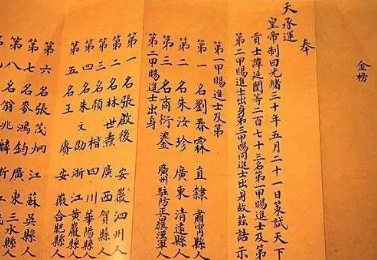 金榜
奉
天承運
皇帝制曰光緒三十年五月二十一日策試天下
貢士譚延闓等二百七十三名第一甲賜進士及第
第二甲賜進士出身第三甲賜同進士出身故茲誥示
第一甲賜進士及第
第一名劉春霖 直隸 肅甯縣人
第二名朱汝珍 廣東 清遠縣人
第三名商衍鎏 廣州駐防正白旗漢軍人
第二甲賜進士出身
第一名張啟後 安徽 泗州人
第二名林世燾 廣西 賀縣人
第三名顏楷 四川 華陽縣人
第四名朱文劭 浙江 黃巖縣人
第五名王賡 安徽 合肥縣人
第六名張茂炯 江蘇 吳縣人
第七名麥鴻鈞 廣東 三水縣人
第八名翁兆麟
第九名